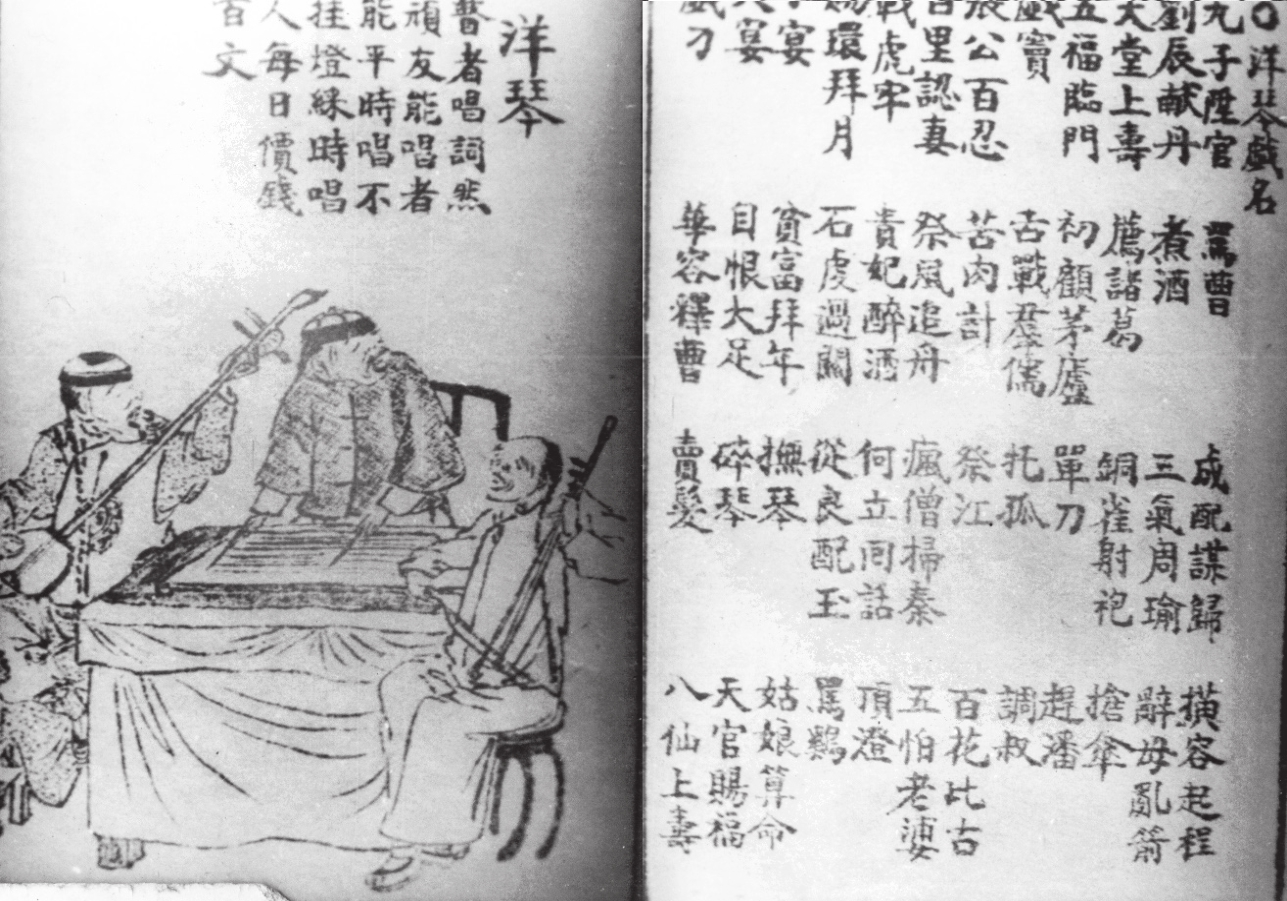 ○洋琴戲名
九子陞官
劉辰献丹
大堂上壽
五福臨門
戲竇
公百忍
百里認妻
戰虎牢
環拜月
宴
宴
戲刀
罵曹
煮酒
薦諸葛
初顧茅廬
舌戰羣儒
苦肉計
祭風追舟
貴妃醉酒
石虔過關
貧富拜年
自恨大足
華容釋曹
成配謀歸
三氣周瑜
銅雀射袍
單刀
托孤
祭江
瘋僧掃秦
何立回話
從良配玉
撫琴
碎琴
賣髮
容起程
辭母亂箭
搶傘
趕潘
調叔
百花比古
五怕老婆
頂澄
罵鷄
姑娘算命
天官賜福
八仙上壽
洋琴
瞽者唱詞然
頑友能唱者
能平時唱不
挂燈綵時唱
人每日價錢
百文